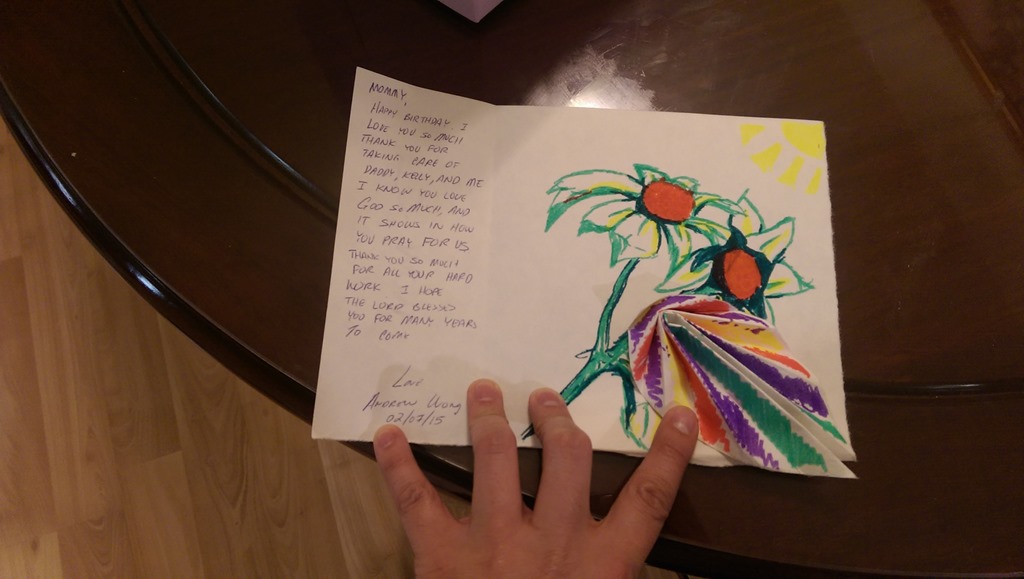 MOMMY,
HAPPY BIRTHDAY. I
LOVE YOU SO MUCH
THANK YOU FOR
TAKING CARE OF
DADDY, KELLY, AND ME
I KNOW YOU LOVE
GOD SO MUCH, AND
IT SHOWS IN HOW
YOU PRAY FOR US
THANK YOU SO MUCH
FOR ALL YOUR HARD
WORK I HOPE
THE LORD BLESSES
YOU FOR MANY YEARS
TO COME
Love
ANDREW Wong
02/07/15